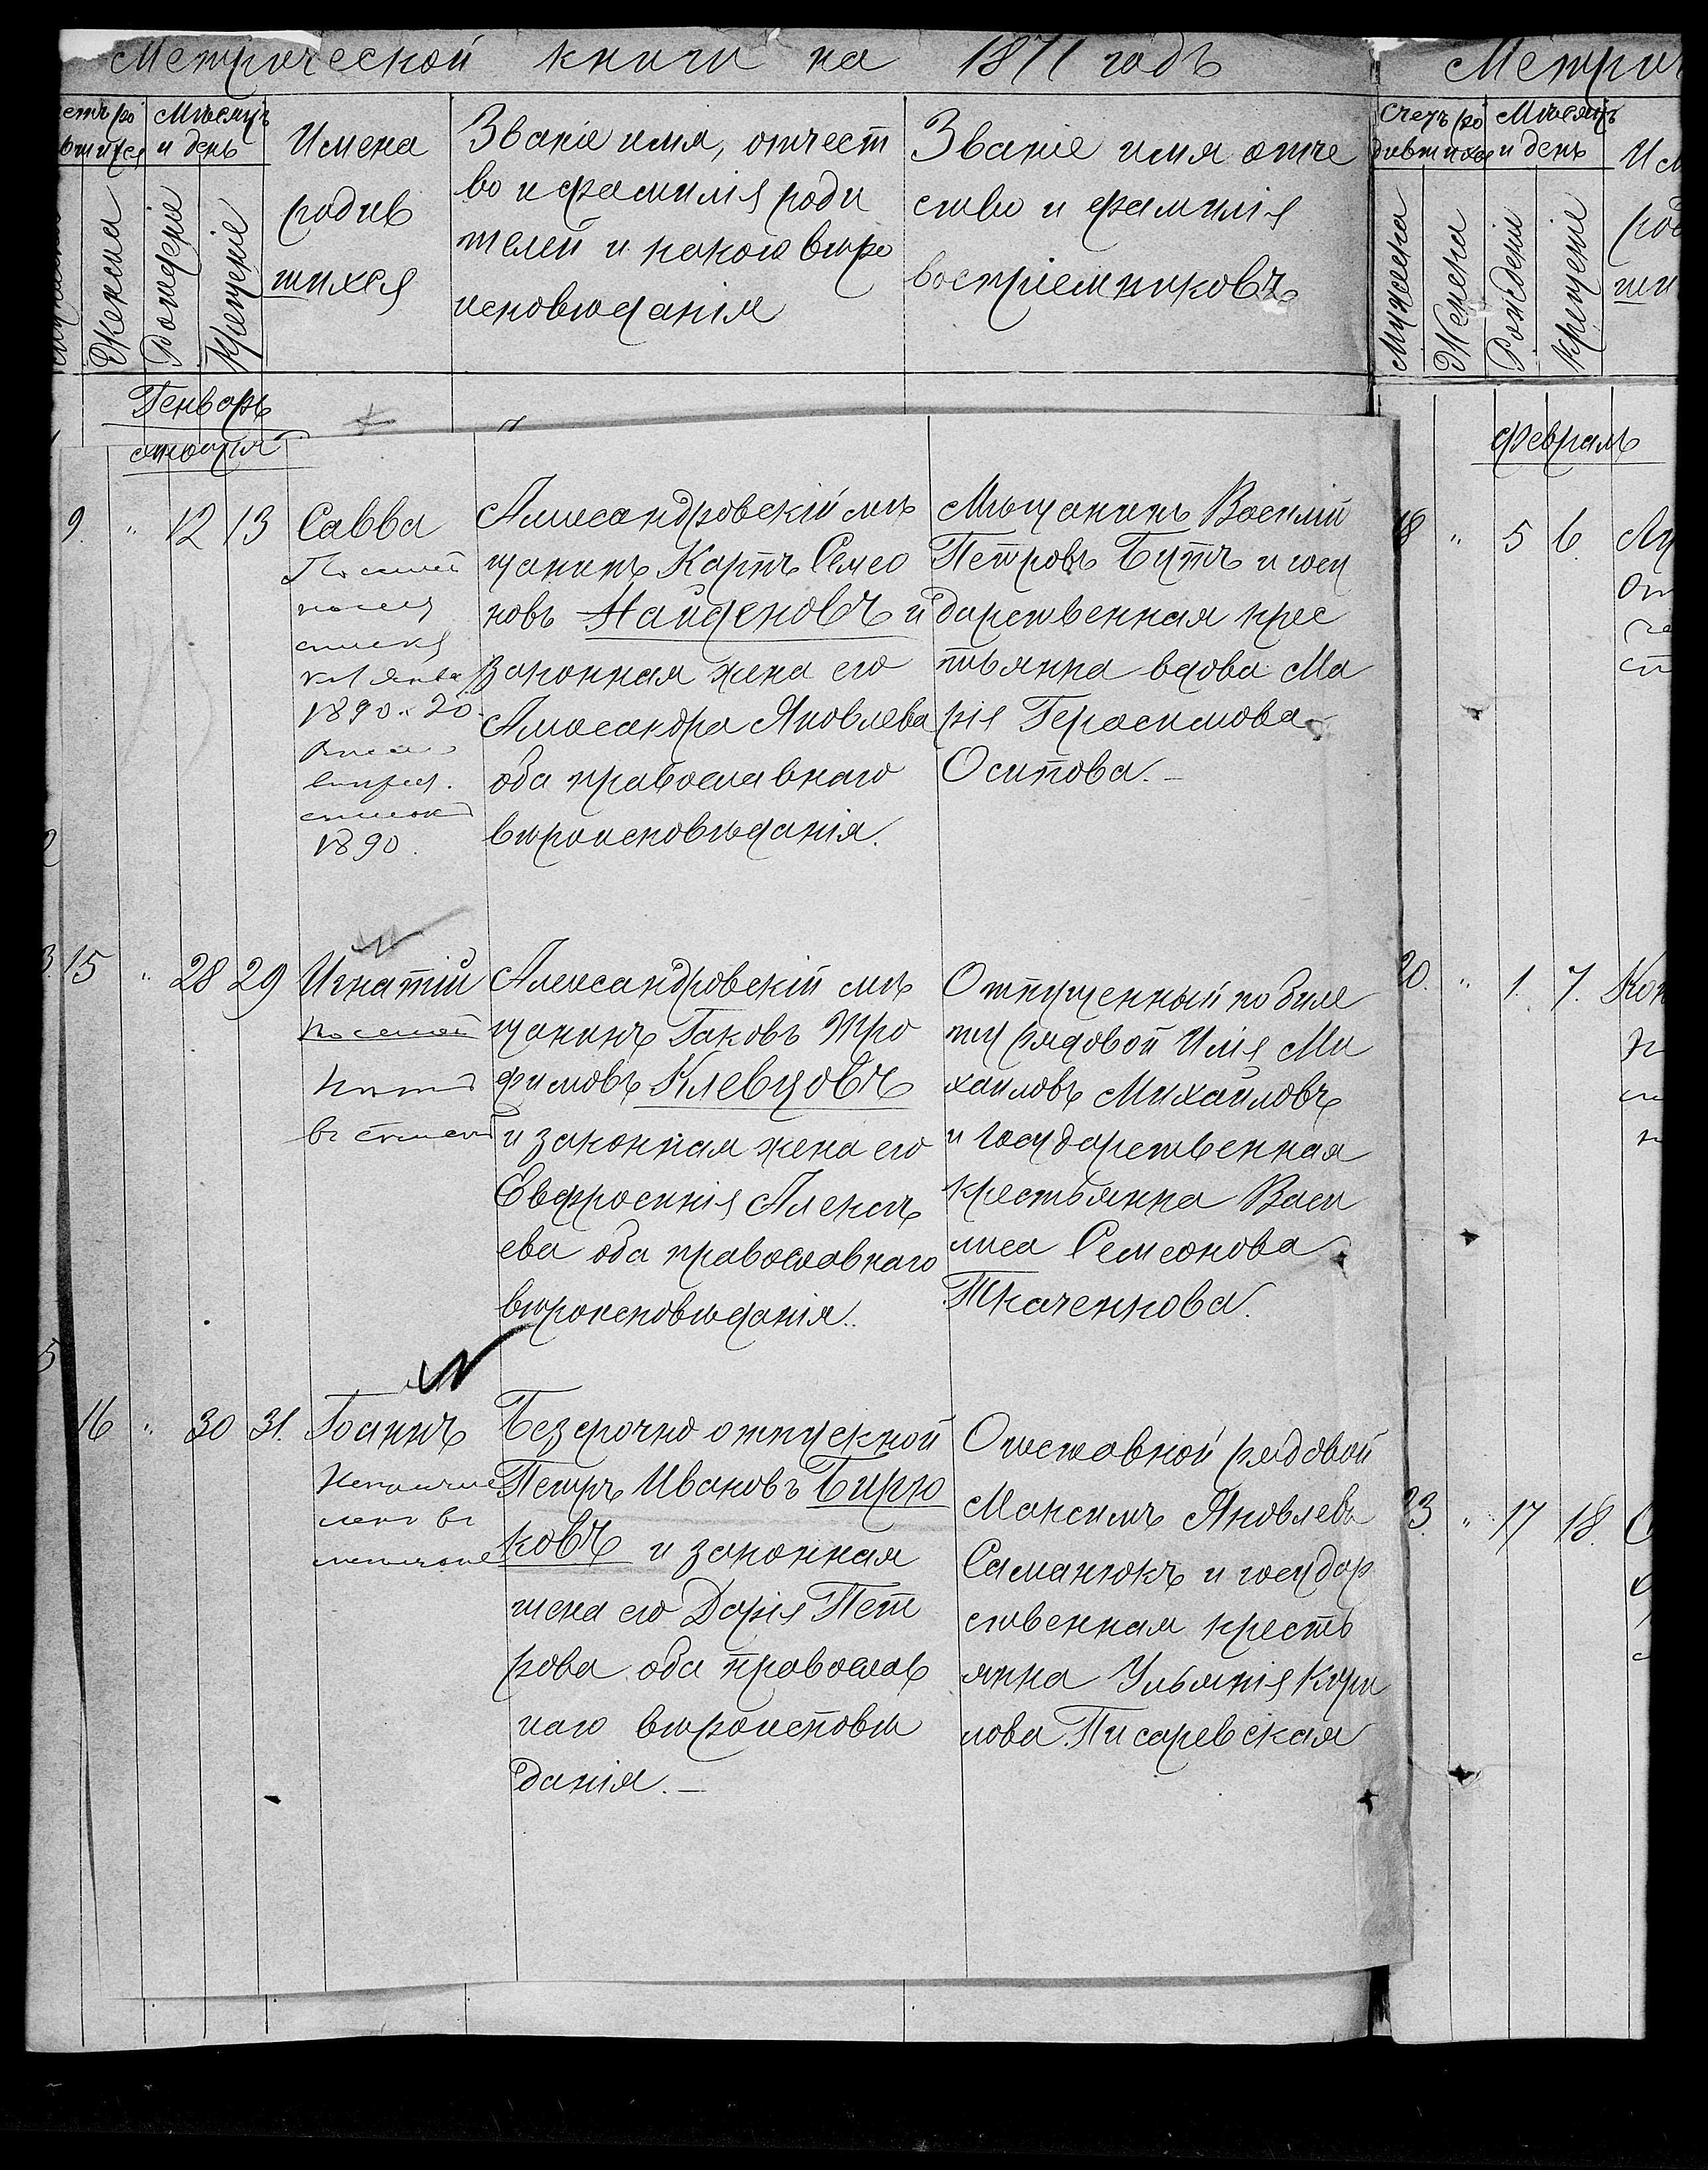 Метрической книги на 1871 годъ
Мѣсяцъ и день
Женска
Рожденіе
Крещеніе
Имена
родив
шихся
Званіе имя, отчест
во и фамилія роди
телей и какого вѣро
исповѣданія
Званіе имя отче
ство и фамилія
воспріемниковъ
Генварь
9. " 12 13 Савва
1890. 20
1890.
Александровскій мѣ
щанинъ Карпъ Семео
новъ Найденовъ и
законная жена его
Александра Яковлева
оба православнаго
вѣроисповѣданія.
Мѣщанинъ Василій
Петровъ Бутъ и госу
дарственная крес
тьянка вдова Ма
рія Герасимова
Осипова.
15 " 28 29 Игнатій
Александровскій мѣ
щанинъ Іаковъ Тро
фимовъ Клевцовъ
и законная жена его
Евфросинія Алексѣ
ева оба православнаго
вѣроисповѣданія.
Отпущенный по биле
ту рядовой Илія Ми
хаиловъ Михайловъ
и государственная
крестьянка Васи
лиса Семеонова
Ткаченкова.
16 " 30 31. Іоаннъ
Безсрочно отпускной
Петръ Ивановъ Бирю
ковъ и законная
жена его Дарія Пет
рова оба православ
наго вѣроисповѣ
данія.
Отставной рядовой
Максимъ Яковлевъ
Саманюкъ и государ
ственная кресть
янка Ульянія Кири
лова Писаревская
Счетъ ро
дившихся
Мѣсяцъ
и день
Мужеска
Женска
Рожденіе
Крещеніе
Февраль
18 " 5 6.
20. " 1. 7.
23. " 17 18.